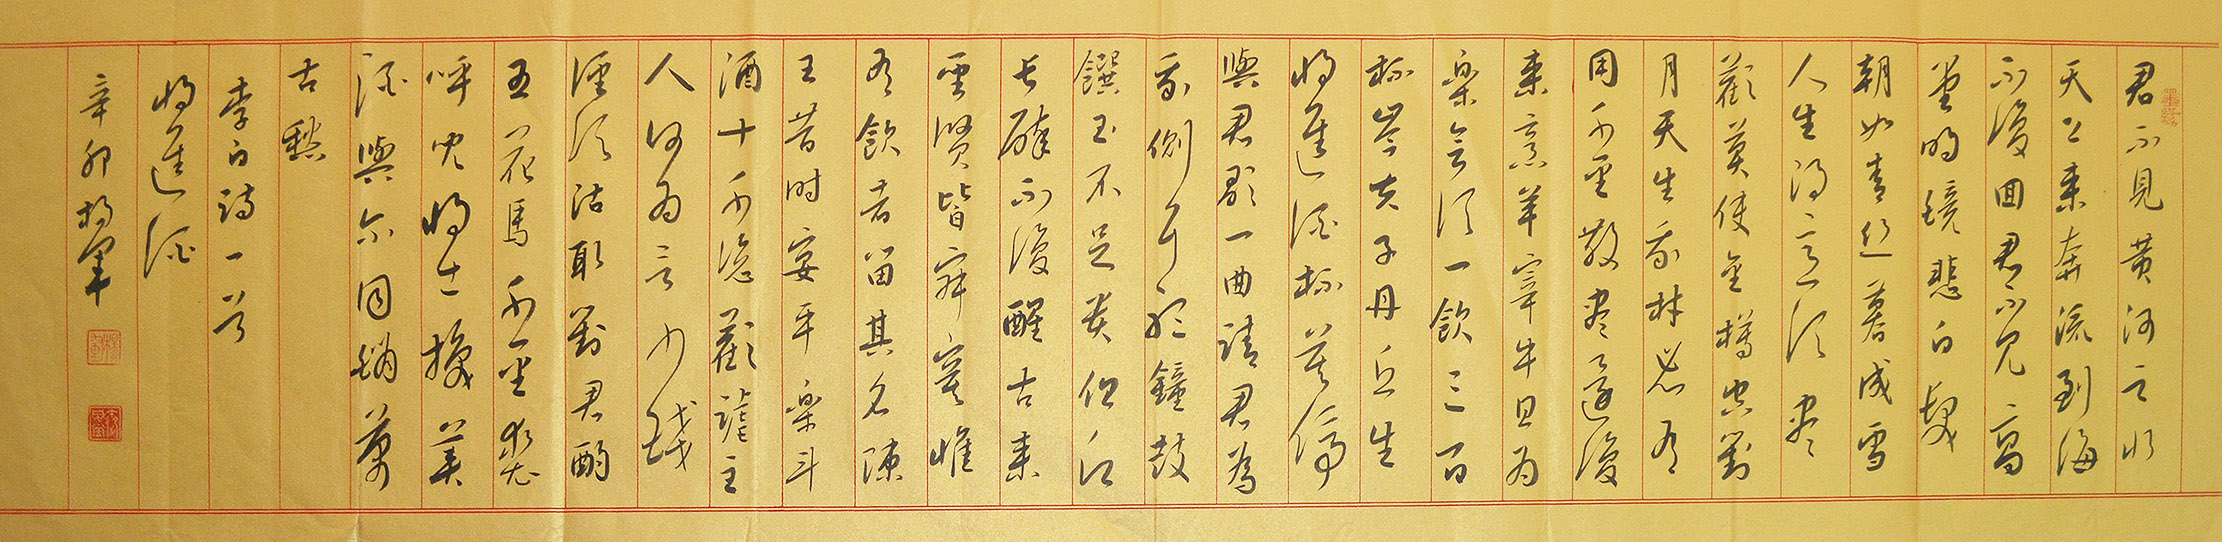 君不見黄河之水
天上来奔流到海
不復回君不見高
堂明鏡悲白髮
朝如青丝暮成雪
人生得意须盡
歡莫使金樽空對
月天生我材必有
用千金散盡還復
来烹羊宰牛且为
樂会须一飲三百
杯岑夫子丹丘生
将進酒杯莫停
與君歌一曲請君為
我側耳聽鐘鼓
饌玉不足貴但願
長醉不復醒古来
聖賢皆寂寞惟
有飲者留其名陳
王昔时宴平樂斗
酒十千恣歡謔主
人何为言少錢
逕须沽取對君酌
五花馬千金裘
呼兒将出換美
酒與尔同銷萬
古愁
李白詩一首
将進酒
辛卯楊軍